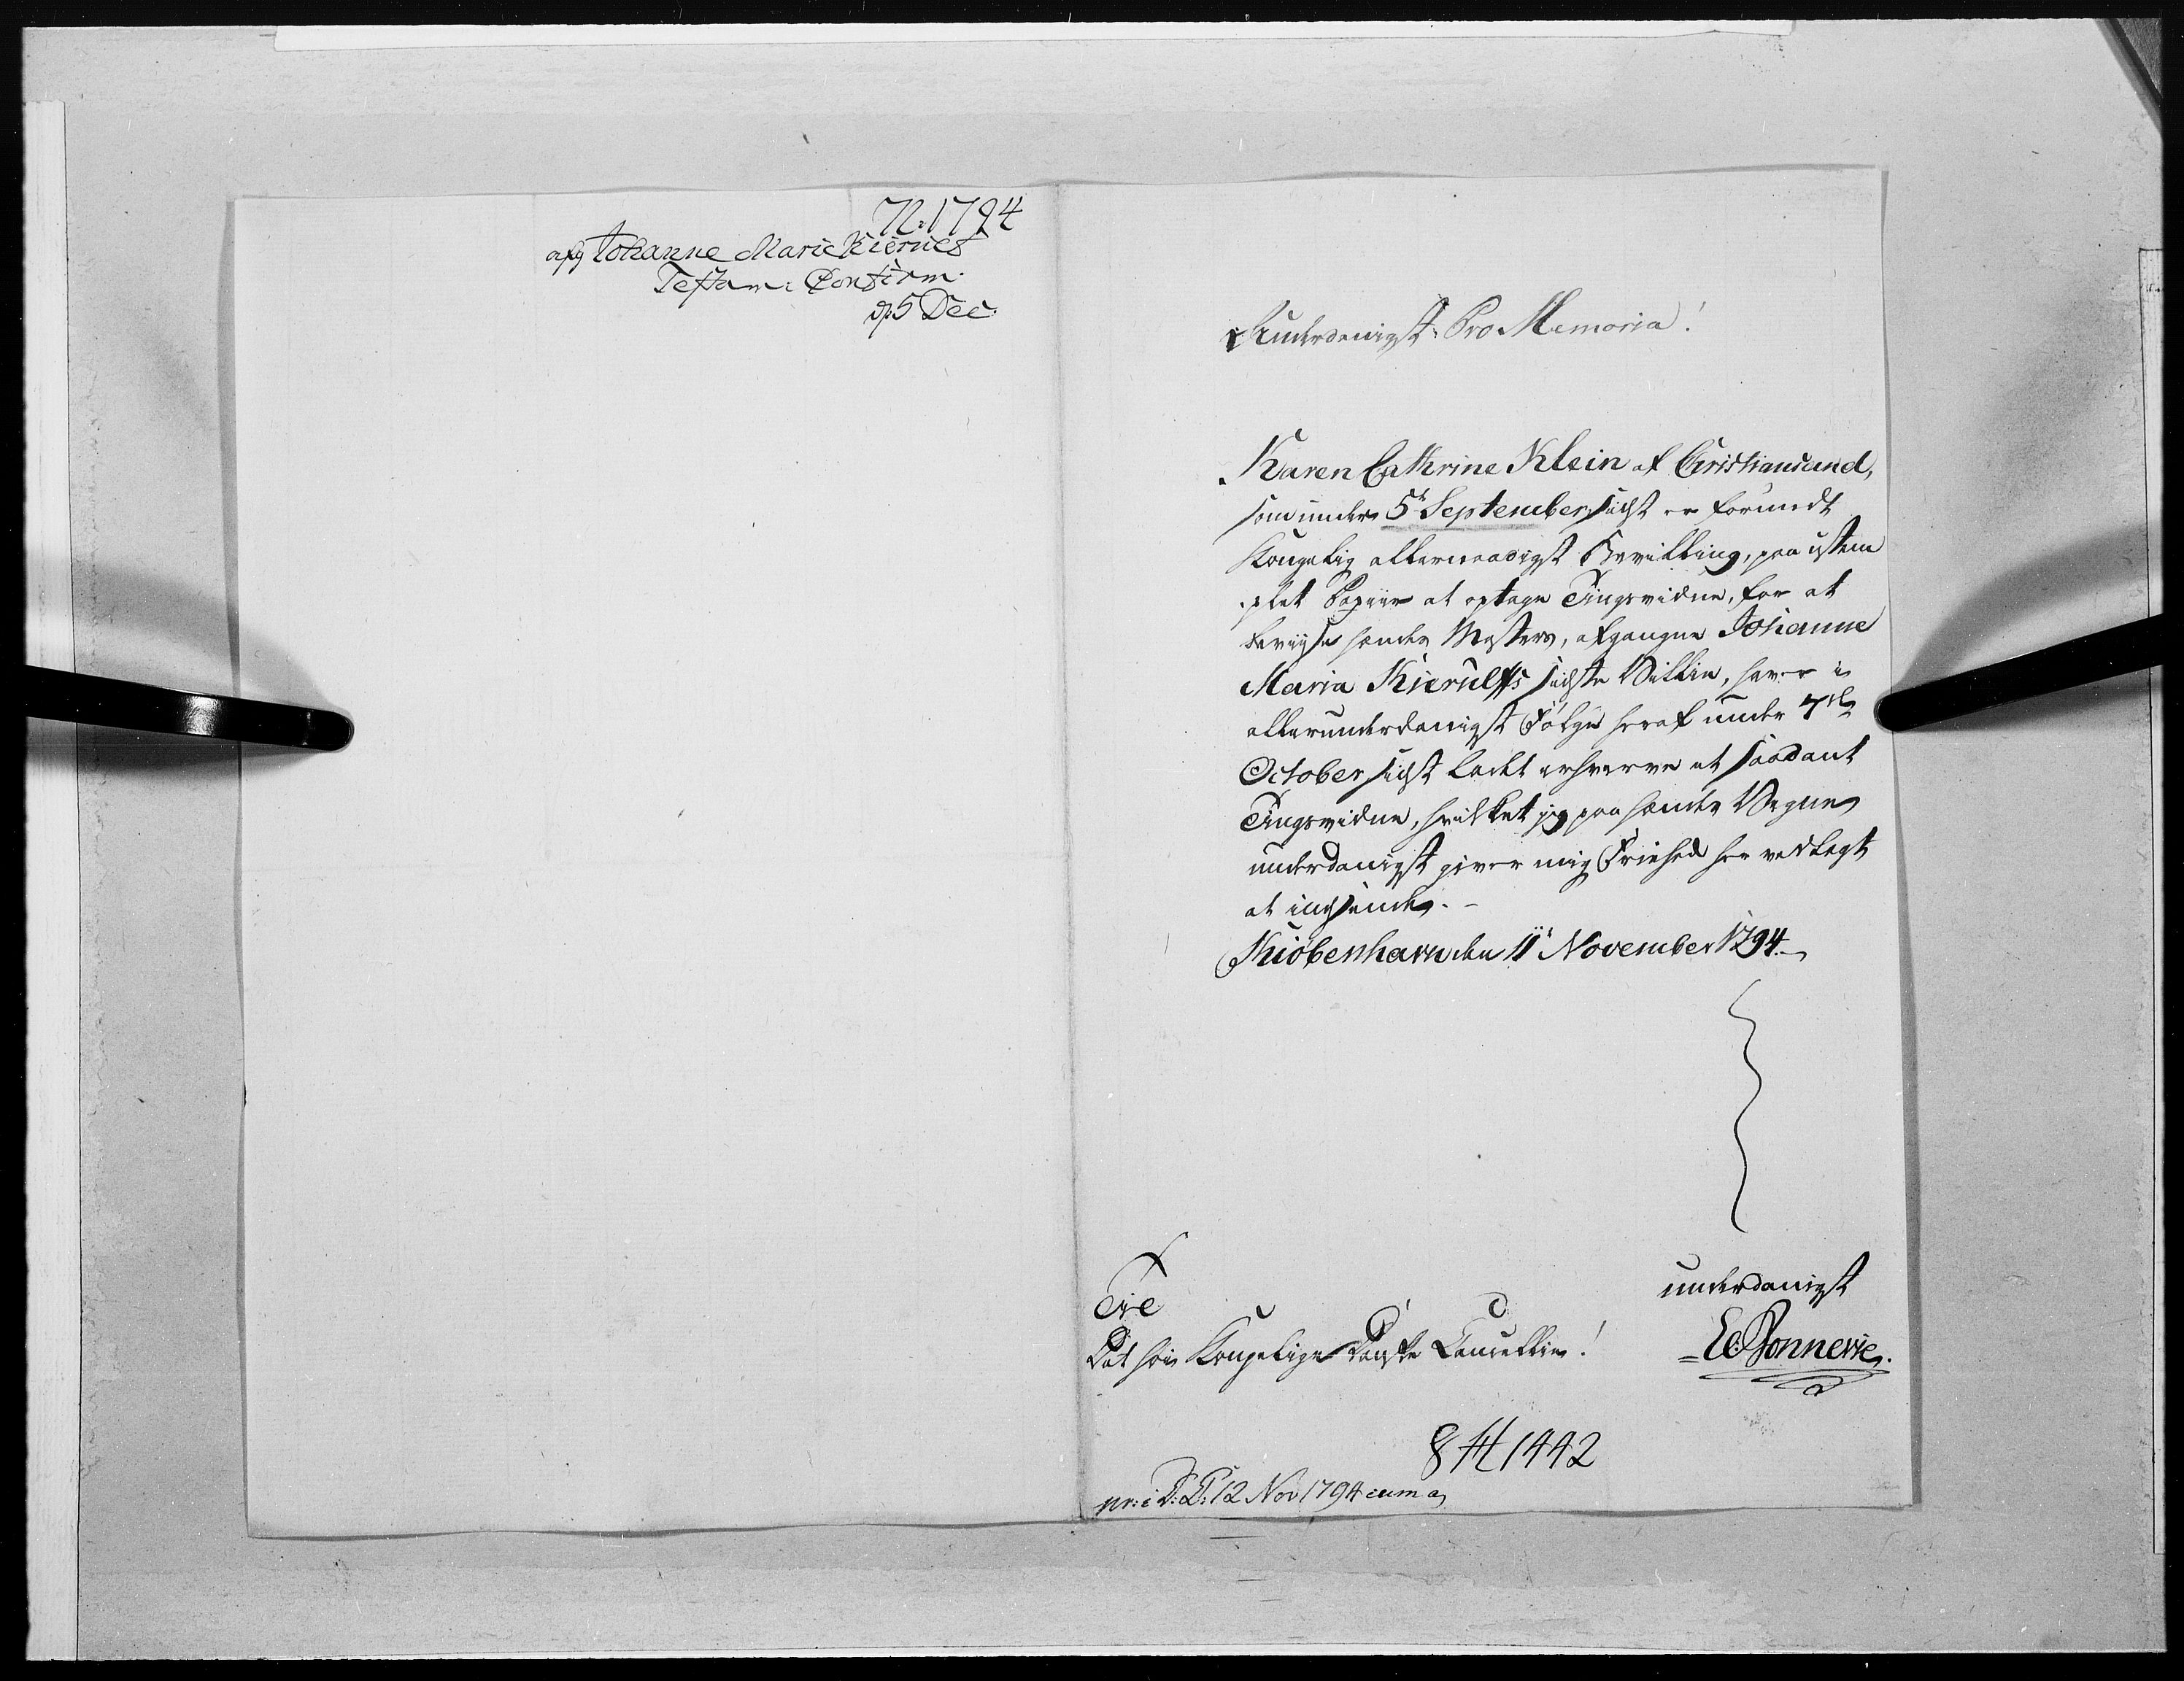 N: 1794
afg Johanne Marie Kierulfs
Testam: Confirm.
d. 5 Dec.
Underdanigst Pro Memoria!
Karen Cathrine Klein af Christiansand,
som under 5te September sidst er forundt
Kongelig allernaadigst Bevilling, paa ustem-
plet Papiir at optage Tingsvidne, for at
beviise hendes Mosters, afgangne Johanne
Maria Kierulffs sidste Villie, haver i
allerunderdanigst Følge heraf under 7de
October sidst ladet erhverve et saadant
Tingsvidne, hvilket jeg paa hendes Vegne
underdanigst giver mig Friehed her vedlagt
at indsende.
Kiøbenhavn den 11te November 1794.
underdanigst
Til
Det høie Kongelige Danske Cancellie!
E: Bonnevie.
8 H 1442
pr: i D: C: 12 Nov 1794 cum a